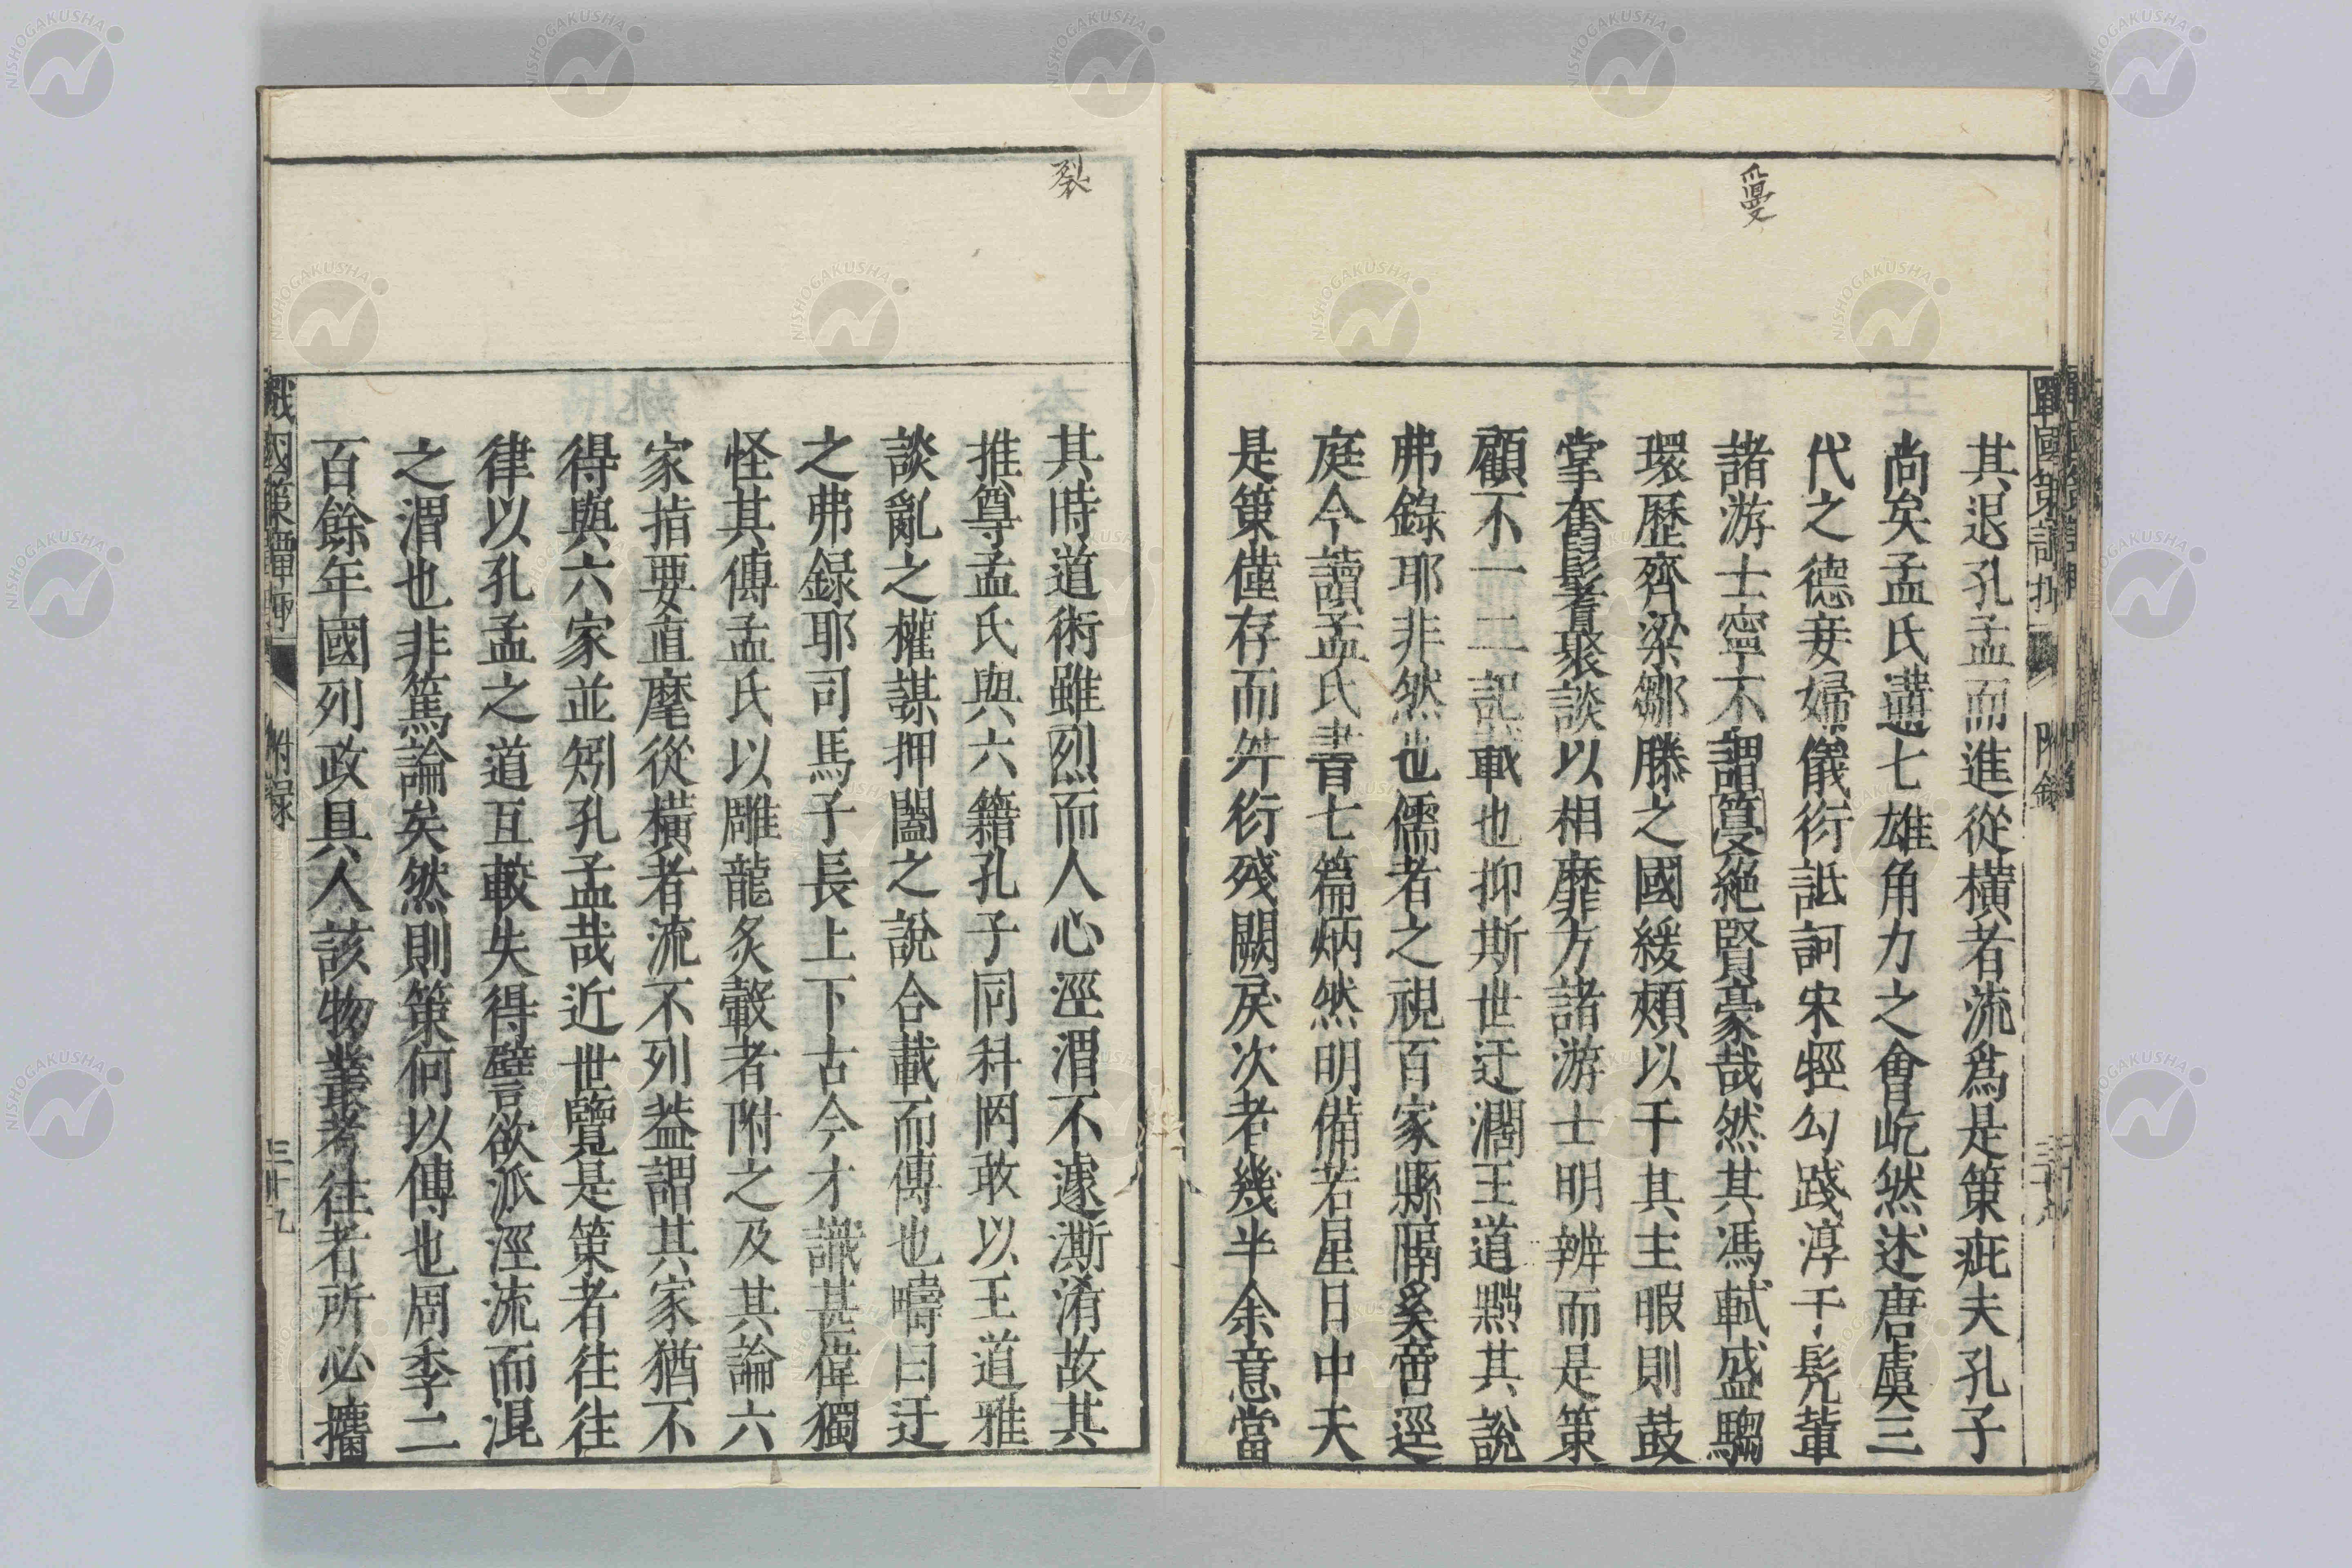 其退孔孟而進從橫者流爲是策疵夫孔子
尚矣孟氏遘七雄角力之會屹然述唐虞三
代之德妾婦儀衍詆訶宋牼勾踐淳于髡輩
諸游士寧不謂 絕賢豪哉然其馮軾盛騶
環歷齊梁鄒滕之國緩頰以干其主暇則鼓
掌奮髯耆聚談以相靡方諸游士明辨而是策
顧不一二記載也抑斯世迂濶王道黜其說
弗錄耶非然也儒者之視百家縣隔奚啻逕
庭今讀孟氏書七篇炳然明備若星日中天
是策僅存而舛衍殘闕戾次者幾半余意當
其時道術雖烈而人心涇渭不遽澌淆故其
推尊孟氏與六籍孔子同科罔敢以王道雅
談亂之權謀押闔之說合載而傳也疇曰迂
之弗録耶司馬子長上下古今才識甚偉獨
怪其傳孟氏以雕龍炙轂者附之及其論六
家指要直麾從橫者流不列葢謂其家猶不
得與六家並矧孔孟哉近世覽是策者往往
律以孔孟之道互較失得譬欲派涇流而混
之渭也非篤論矣然則策何以傳也周季二
百餘年國列政具人該物叢考往者所必攟
裂
戰國策譚棷
附録
三十九
附錄